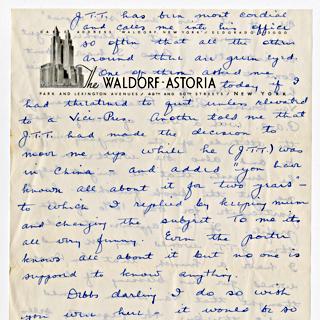 J.T.T. has been most cordial
CABLE ADDRESS WALDORF, NEW YORK ELDORADO 5-3000
and calls me into his office
so often that all the others
around there are green eyed.
One of them asked me
The WALDORF-ASTORIA today if I
PARK AND LEXINGTON AVENUES 49TH AND 50TH STREETS NEW YORK
had threatened to quit unless elevated
to a Vice-Pres. Another told me that
J.T.T. had made the decision to
move me up while he (J.T.T.) was
in China - and added "you have
known all about it for two years" -
to which I replied by keeping mum
and changing the subject. To me its
all very funny. Even the porter
knows all about it but no one is
supposed to know anything.
Debbs darling I do so wish
you were here it would be so